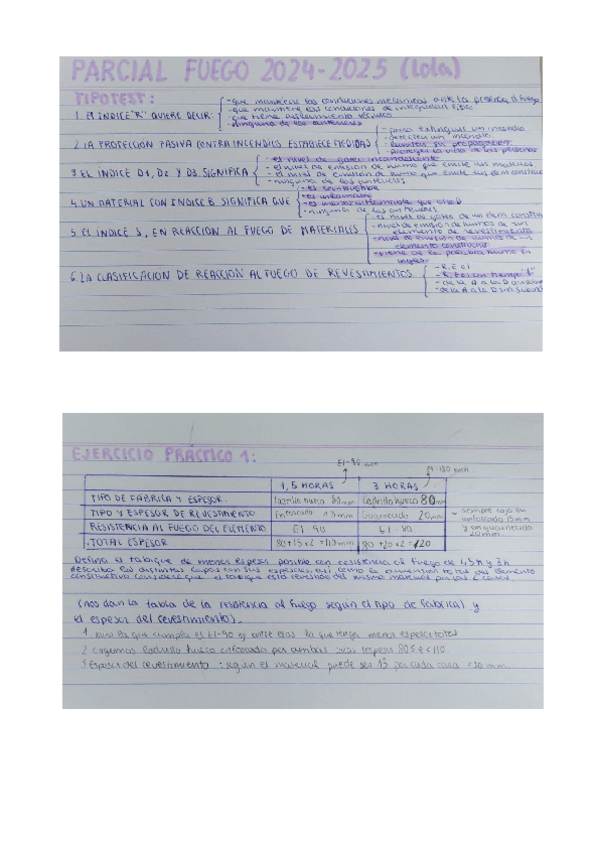 PARCIAL FUEGO 2024-2025 (lola)
TIPO TEST:
1. EL INDICE "R" QUIERE DECIR:
- que mantiene las condiciones mecanicas ante la presencia d fuego
- que mantiene las condiciones de integridad física
- que tiene aislamiento térmico
- ninguna de las anteriores
2. LA PROTECCION PASIVA CONTRA INCENDIOS ESTABLECE MEDIDAS
- para extinguir un incendio
- detecten un incendio
- limitar su propagación
- proteger la vida de las personas
3. EL INDICE D1, D2 Y D3 SIGNIFICA
- el nivel de gotas incandescente
- el nivel de emision de humo que emite un material
- el nivel de emision de humo que emite un elem constructivo
- ninguna de las anteriores
4. UN MATERIAL CON INDICE B SIGNIFICA QUE
- es combustible
- ninguna de las anteriores
5. EL ÍNDICE S, EN REACCIÓN AL FUEGO DE MATERIALES
- el nivel de gotas de un elem constru
- nivel de emision de humos de un
elemento de revestimiento
- nivel de emision de humos de un
elemento constructivo
- viene de la palabra humo en
ingles
6. LA CLASIFICACION DE REACCION AL FUEGO DE REVESTIMIENTOS
- R, E o I
- R, E o I con tiempo "t"
- de la A a la D
- de la A a la D sin
EJERCICIO PRÁCTICO 1:
EI-90 min
EI-180 min
1,5 HORAS 3 HORAS
TIPO DE FABRICA Y ESPESOR. Ladrillo hueco 80mm Ladrillo hueco 80mm
TIPO Y ESPESOR DE REVESTIMIENTO Enfoscado 15mm Guarnecido 20mm
RESISTENCIA AL FUEGO DEL ELEMENTO EI 90 EI
TOTAL ESPESOR 80+15x2=110mm 80+20x2=120
- siempre cojo en
enfoscado 15mm
y en guarnecido
20mm
Defina el tabique de menor espesor posible con resistencia al fuego de 1,5h y 3h
describa las distintas capas con sus espesores, así como la dimension total del elemento
constructivo considere que el tabique está revestido del mismo material por las 2 caras.
(nos dan la tabla de la resistencia al fuego según el tipo de fabrica) y
el espesor del revestimiento).
1 busco la que cumpla es EI-90 y entre ellas la que tenga menos espesor total
2 Cogemos ladrillo hueco enfoscado por ambas caras (espesor 80≤e<110.
3 Espesor del revestimiento: según el material puede ser 15 por cada cara =30 mm.